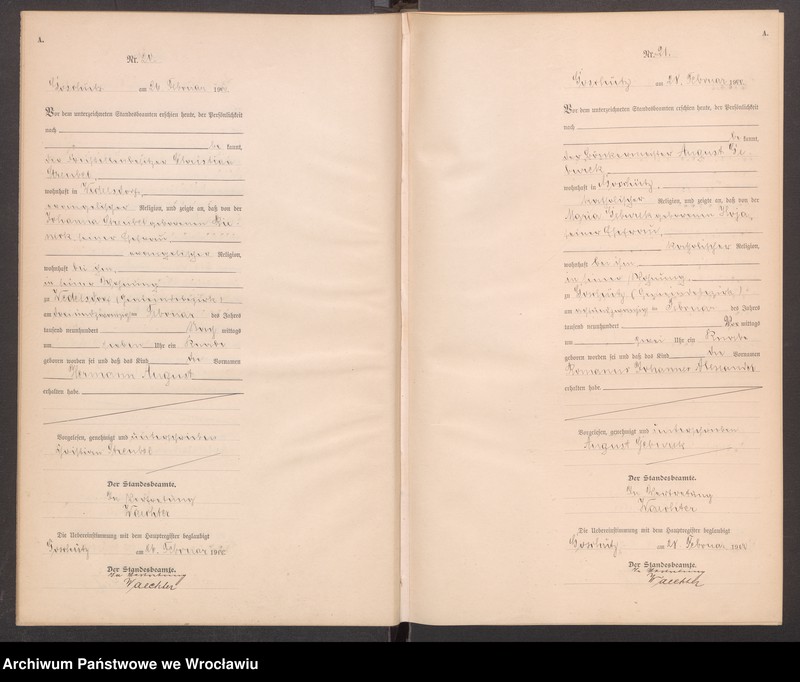 A.
Nr. 20.
Goschütz am 26. Februar 1900
Vor dem unterzeichneten Standesbeamten erschien heute, der Persönlichkeit
nach
be kannt,
der Christian
Streubel
wohnhaft in
evangelischer Religion, und zeigte an, daß von der
Johanna Streubel geborenen
seiner Ehefrau
evangelischer Religion,
wohnhaft bei ihm
in seiner Wohnung
zu
am dreiundzwanzigsten Februar des Jahres
tausend neunhundert Vor mittags
um sieben Uhr ein Knabe
geboren worden sei und daß das Kind die Vornamen
Hermann August
erhalten habe.
Vorgelesen, genehmigt und unterschrieben
Christian Streubel
Der Standesbeamte.
In Vertretung
Waechter
Die Uebereinstimmung mit dem Hauptregister beglaubigt
Goschütz am 26. Februar 1900
Der Standesbeamte.
In Vertretung
Waechter
A.
Nr. 21.
Goschütz am 28. Februar 1900
Vor dem unterzeichneten Standesbeamten erschien heute, der Persönlichkeit
nach
be kannt,
der August
wohnhaft in Goschütz
katholischer Religion, und zeigte an, daß von der
Maria geborenen
seiner Ehefrau,
katholischer Religion,
wohnhaft bei ihm
in seiner Wohnung
zu Goschütz
am Februar des Jahres
tausend neunhundert Vor mittags
um zwei Uhr ein Knabe
geboren worden sei und daß das Kind die Vornamen
Johannes Alexander
erhalten habe.
Vorgelesen, genehmigt und unterschrieben
August
Der Standesbeamte.
In Vertretung
Waechter
Die Uebereinstimmung mit dem Hauptregister beglaubigt
Goschütz, am 28. Februar 1900
Der Standesbeamte.
In Vertretung
Waechter
Archiwum Państwowe we Wrocławiu